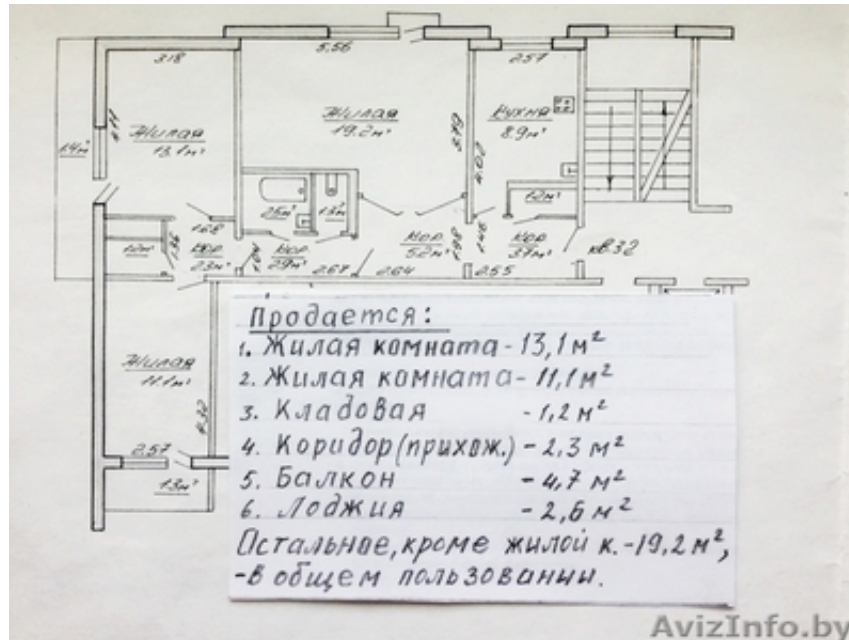 3.18
5.56
2.57
Жилая
13.1м²
4.11
1.4м²
Жилая
19.2м²
3.79
Кухня
8.9м²
4.02
2.5м²
1.3м²
1.2м²
1.68
1.2м²
1.36
Кор.
2.3м²
1.04
Кор.
2.9м²
2.67
Кор.
5.2м²
1.98
2.64
1.48
Кор.
3.7м²
2.55
кв.32
Жилая
11.1м²
4.32
2.57
1.3м²
Продается:
1. Жилая комната - 13,1 м²
2. Жилая комната - 11,1 м²
3. Кладовая - 1,2 м²
4. Коридор (прихож.) - 2,3 м²
5. Балкон - 4,7 м²
6. Лоджия - 2,6 м²
Остальное, кроме жилой к. - 19,2 м²,
- в общем пользовании.
AvizInfo.by